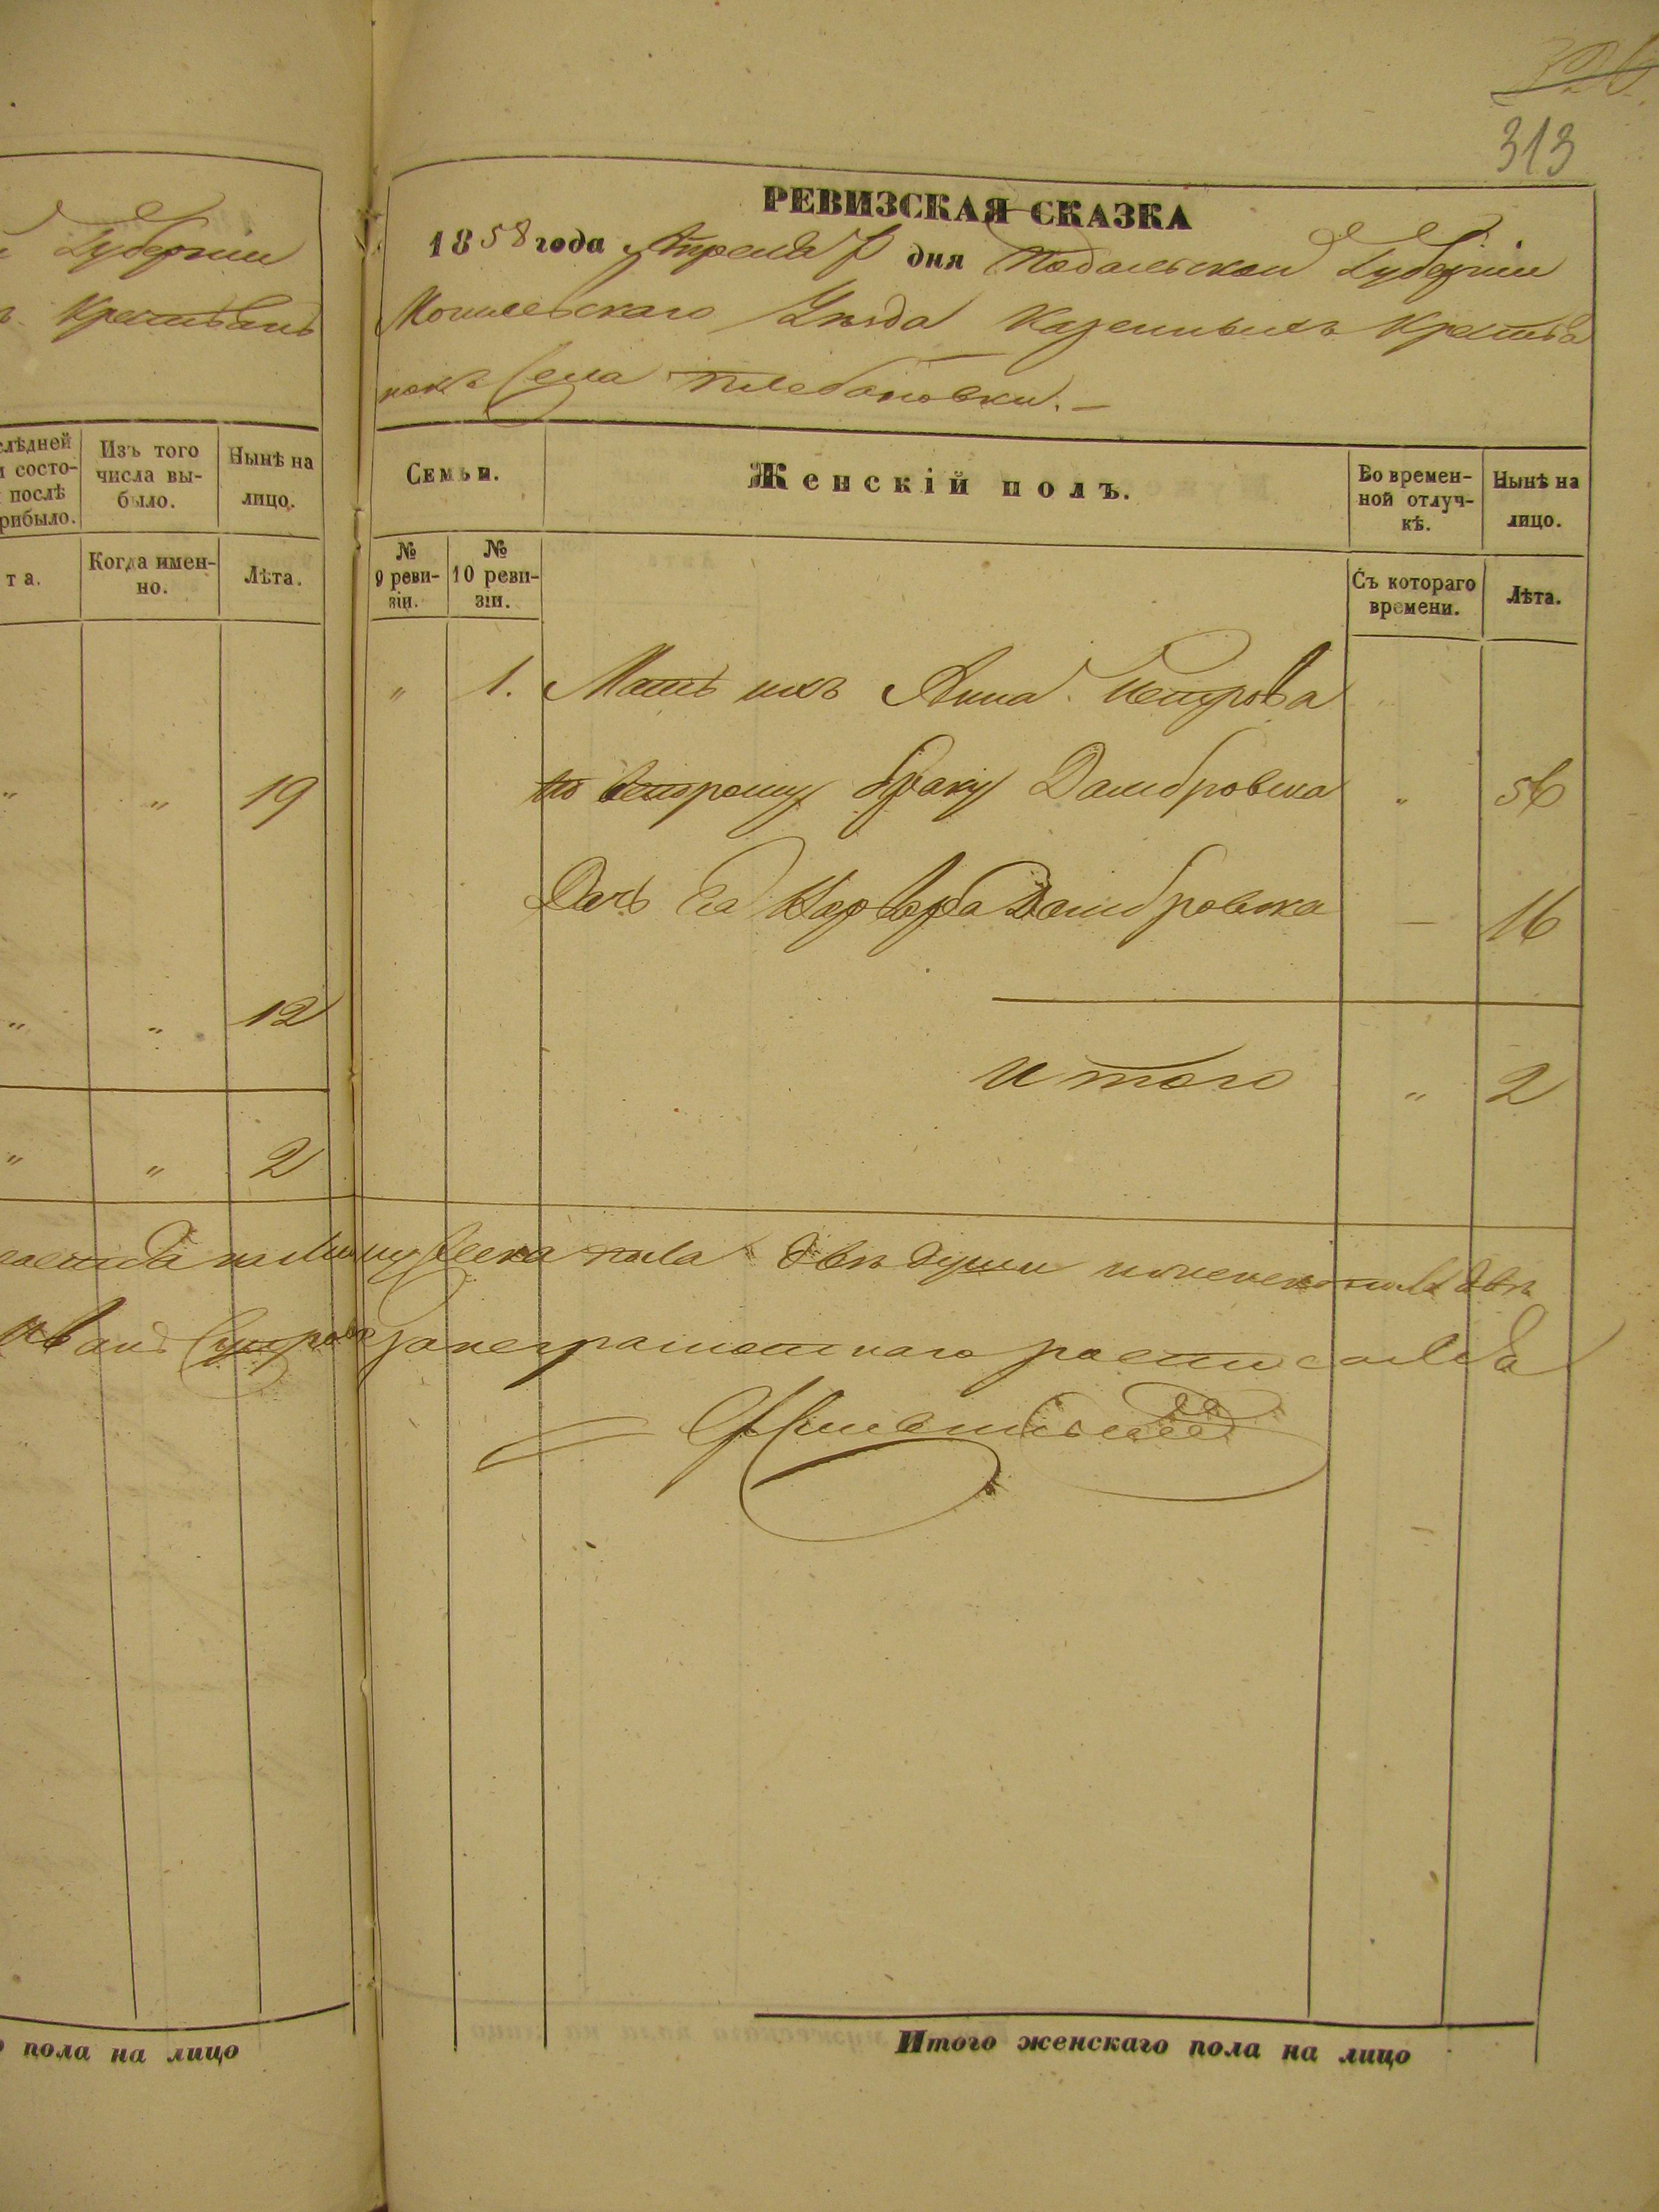 313
Губерніи
Крестьянъ
слѣдней
состо-
послѣ
рибыло.
Изъ того
числа вы-
было.
Нынѣ на
лицо.
та.
Когда имен-
но.
Лѣта.
" " 19
" " 12
" " 2
пола на лицо
РЕВИЗСКАЯ СКАЗКА
1858 года Апреля 7 дня Подольской Губерніи
Могилевскаго Уѣзда Казенныхъ Крестья
нокъ Села Плебановки. —
Семьи.
Женскій полъ.
Во времен-
ной отлуч-
кѣ.
Нынѣ на
лицо.
№
9 реви-
зіи.
№
10 реви-
зіи.
Съ котораго
времени.
Лѣта.
" 1. Мать ихъ Анна Петрова
по второму браку Дамбровска " 56
Дочь Ея Варвара Дамбровска — 16
Итого " 2
мужеска пола двѣ души и женска пола двѣ
Иванъ за неграмотнаго росписался
Итого женскаго пола на лицо